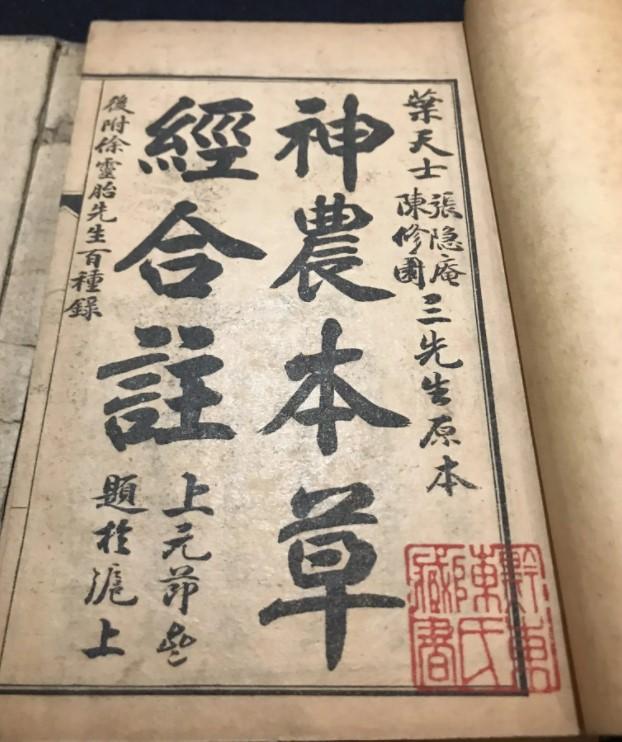 葉天士
張隐庵
陳修園
三先生原本
神農本草
經合註
上元節
題於滬上
後附徐靈胎先生百種錄
黔東
陳氏
藏書